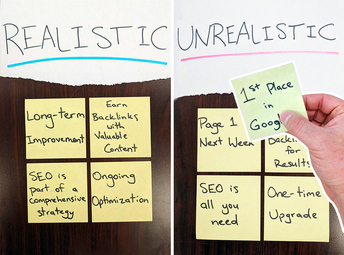 REALISTIC
Long-term
Improvement
Earn
Backlinks
with
Valuable
Content
SEO is
part of a
comprehensive
strategy
Ongoing
Optimization
UNREALISTIC
1st Place
in
Page 1
Next Week
for
Results
SEO is
all you
need
One-time
Upgrade